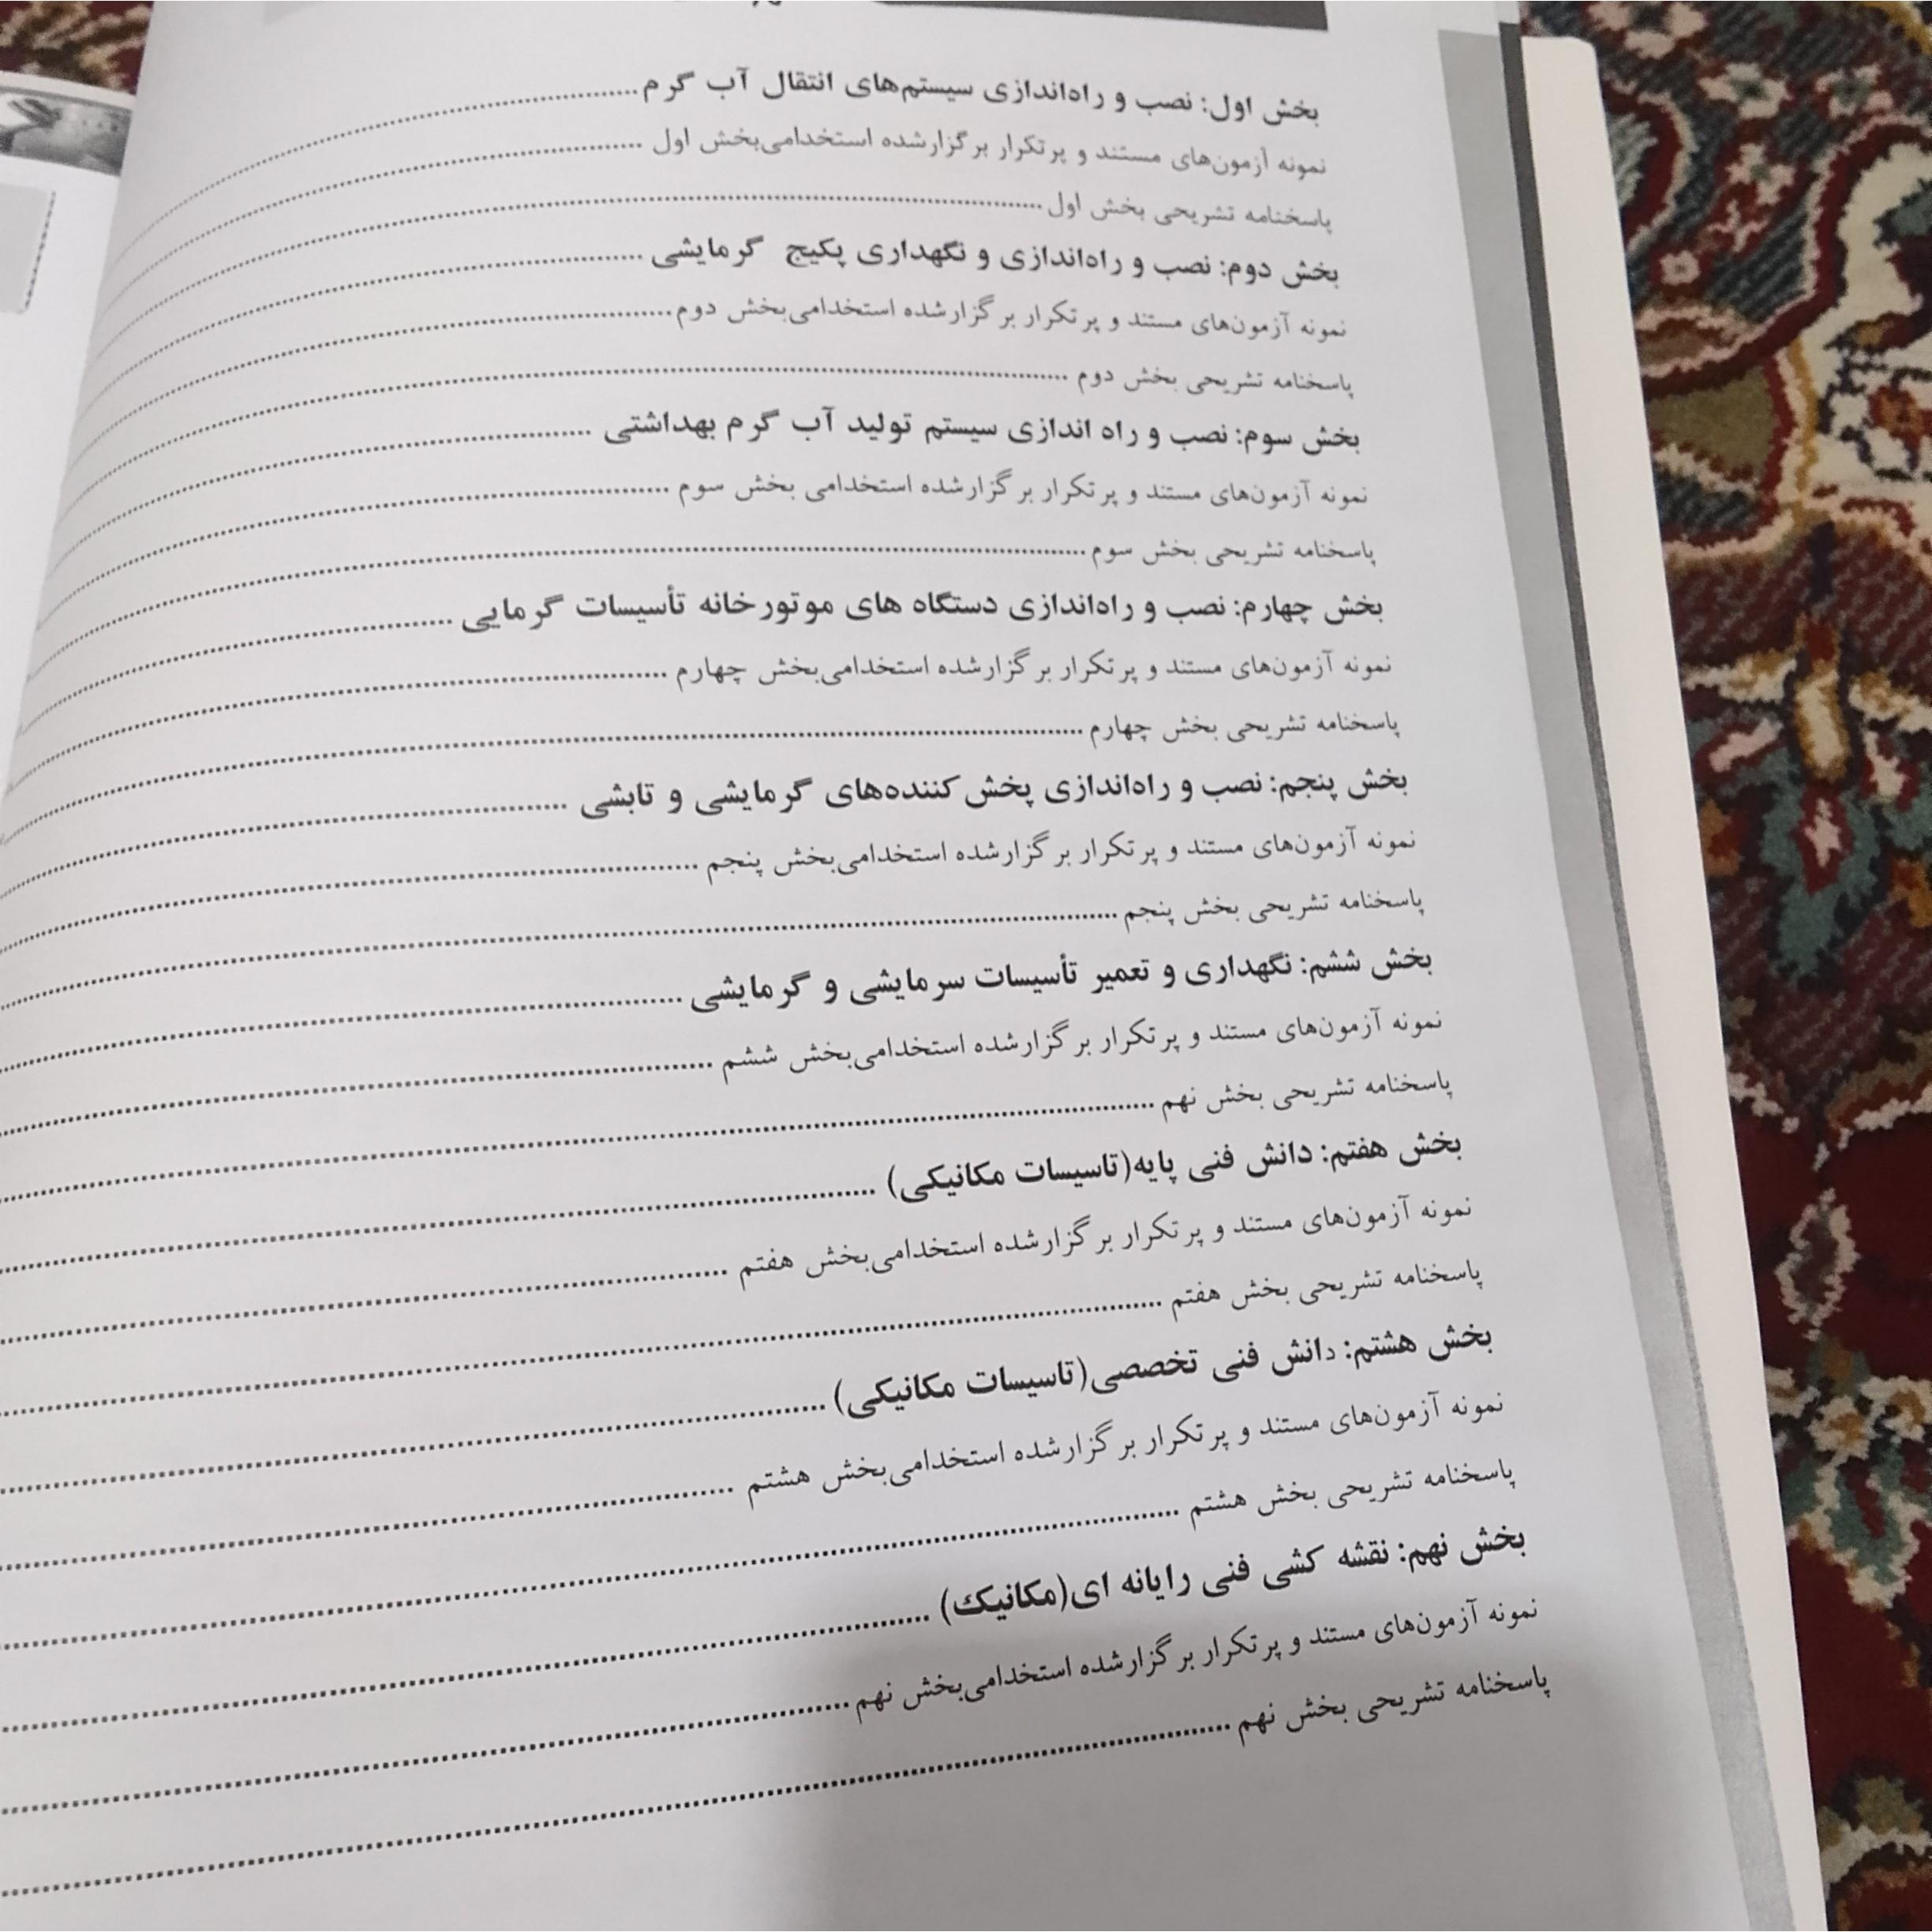 بخش اول: نصب و راه‌اندازی سیستم‌های انتقال آب گرم
نمونه آزمون‌های مستند و پرتکرار برگزارشده استخدامی‌بخش اول
پاسخنامه تشریحی بخش اول
بخش دوم: نصب و راه‌اندازی و نگهداری پکیج گرمایشی
نمونه آزمون‌های مستند و پرتکرار برگزارشده استخدامی‌بخش دوم
پاسخنامه تشریحی بخش دوم
بخش سوم: نصب و راه اندازی سیستم تولید آب گرم بهداشتی
نمونه آزمون‌های مستند و پرتکرار برگزارشده استخدامی بخش سوم
پاسخنامه تشریحی بخش سوم
بخش چهارم: نصب و راه‌اندازی دستگاه های موتورخانه تأسیسات گرمایی
نمونه آزمون‌های مستند و پرتکرار برگزارشده استخدامی‌بخش چهارم
پاسخنامه تشریحی بخش چهارم
بخش پنجم: نصب و راه‌اندازی پخش‌کننده‌های گرمایشی و تابشی
نمونه آزمون‌های مستند و پرتکرار برگزارشده استخدامی‌بخش پنجم
پاسخنامه تشریحی بخش پنجم
بخش ششم: نگهداری و تعمیر تأسیسات سرمایشی و گرمایشی
نمونه آزمون‌های مستند و پرتکرار برگزارشده استخدامی‌بخش ششم
پاسخنامه تشریحی بخش نهم
بخش هفتم: دانش فنی پایه(تاسیسات مکانیکی)
نمونه آزمون‌های مستند و پرتکرار برگزارشده استخدامی‌بخش هفتم
پاسخنامه تشریحی بخش هفتم
بخش هشتم: دانش فنی تخصصی(تاسیسات مکانیکی)
نمونه آزمون‌های مستند و پرتکرار برگزارشده استخدامی‌بخش هشتم
پاسخنامه تشریحی بخش هشتم
بخش نهم: نقشه کشی فنی رایانه ای(مکانیک)
نمونه آزمون‌های مستند و پرتکرار برگزارشده استخدامی‌بخش نهم
پاسخنامه تشریحی بخش نهم